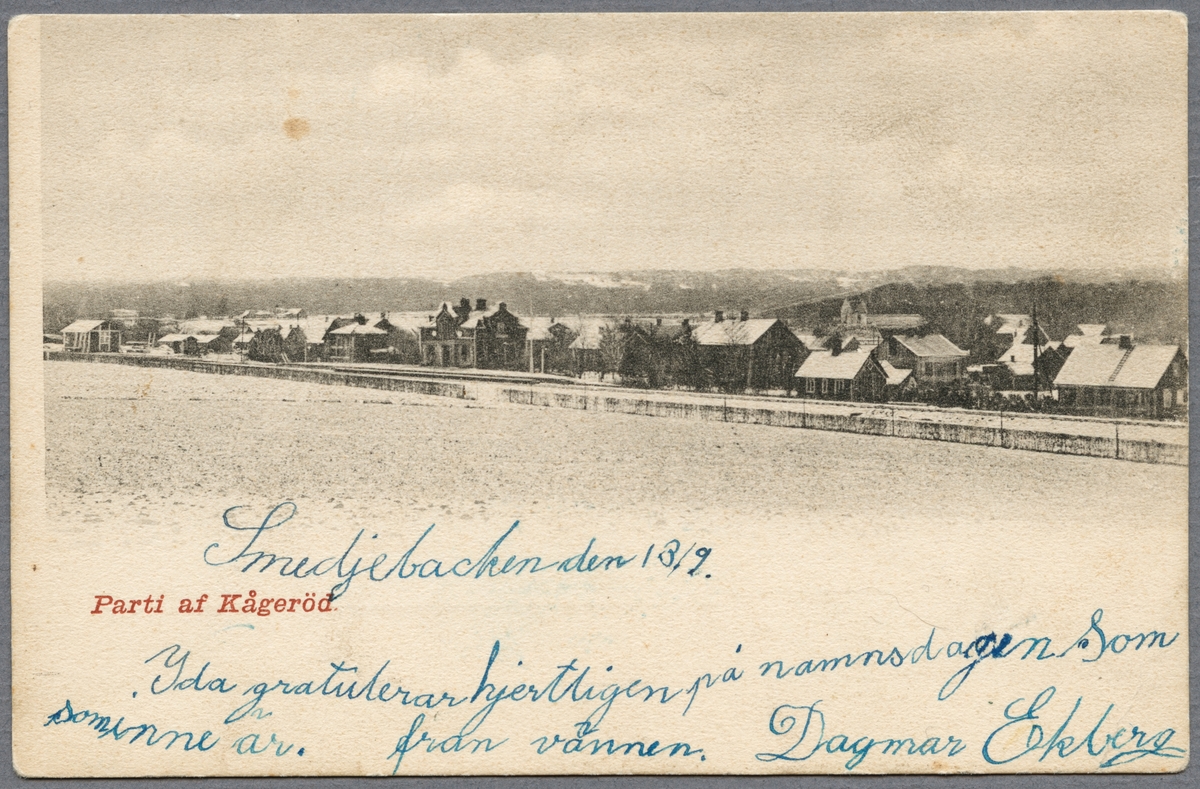 Smedjebacken den 13/9.
Parti af Kågeröd.
Yda gratulerar hjertligen på namnsdagen Som
som inne är. från vännen. Dagmar Ekberg